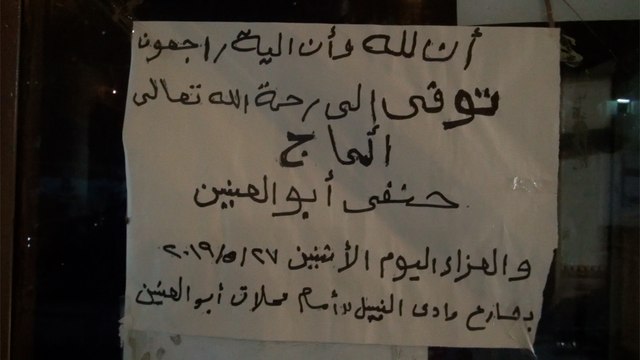 أن لله وأن اليه راجعون
توفى الى رحمة الله تعالى
الحاج
حنفى أبو العينين
والعزاء اليوم الأثنين ٢٠١٩/٥/٢٧
بشارع وادى النيل أمام محلات أبو العينين